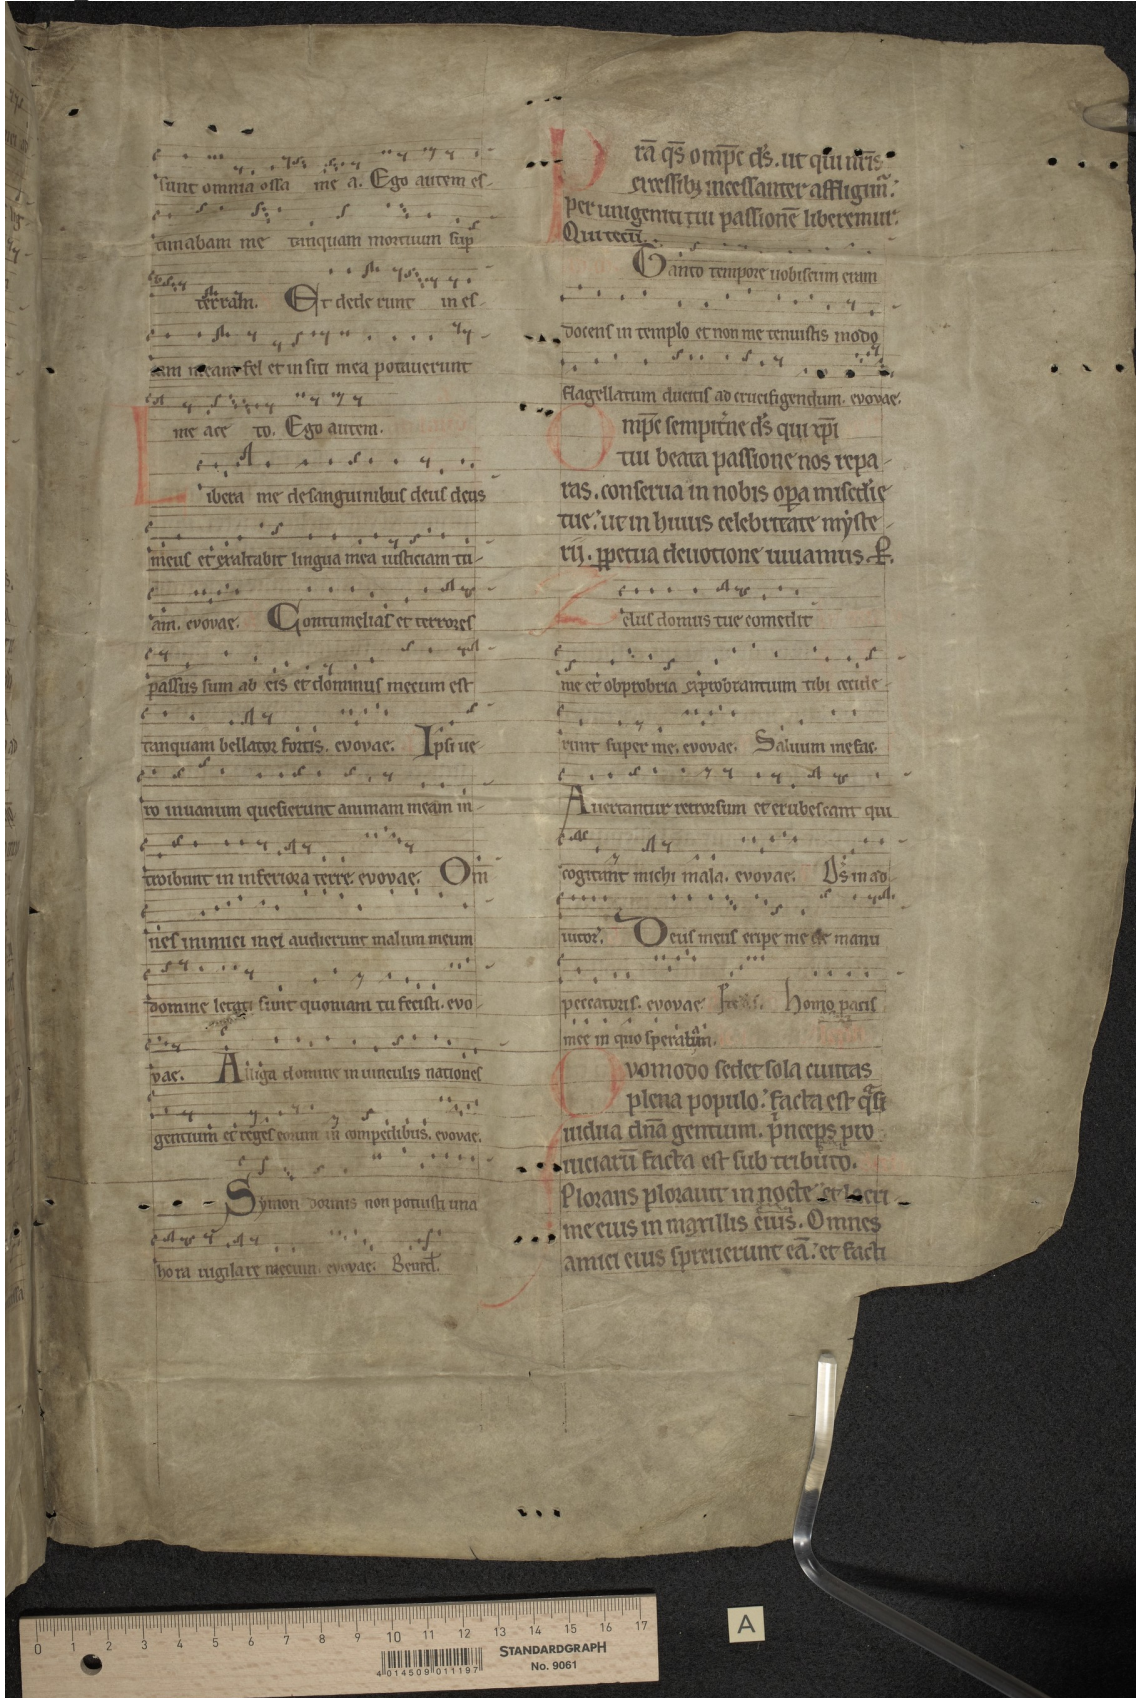 sunt omnia ossa me a. Ego autem es-
timabam me tanquam mortuum sup̄
terram. Et dede runt in es-
cam meam fel et in siti mea potauerunt
me ace to. Ego autem.
Libera me de sanguinibus deus deus
meus et exaltabit lingua mea iusticiam tu-
am. evovae. Contumelias et terrores
passus sum ab eis et dominus mecum est
tanquam bellator fortis. evovae. Ipsi ue-
ro inuanum quesierunt animam meam in-
troibunt in inferiora terre. evovae. Om
nes inimici mei audierunt malum meum
domine letati sunt quoniam tu fecisti. evo-
vae. Alliga domine in uinculis nationes
gentium et reges eorum in compedibus. evovae.
Symon dormis non potuisti una
hora uigilare mecum. evovae. Bened̄.
Prā q̄s omp̄c d̄s. ut qui nr̄is
excessibꝫ incessanter affligim̄.
per unigeniti tui passionē liberemur.
Qui tecū.
Tanto tempore uobiscum eram
docens in templo et non me tenuistis modo
flagellatum ducitis ad crucifigendum. evovae.
Omp̄c sempit̄ne d̄s qui xp̄i
tui beata passione nos repa-
ras. conserua in nobis oꝑa misc̄die
tue. ut in huius celebritate myste-
rij. ꝑpetua deuotione uiuamus. P̄.
Zelus domus tue comedit
me et obprobria exprobrantium tibi cecide-
runt super me. evovae. Saluum me fac.
Auertantur retrorsum et erubescant qui
cogitant michi mala. evovae. D̄s in ad-
iutor̄. Deus meus eripe me de manu
peccatoris. evovae. homo pacis
mee in quo sperabam.
Qvomodo sedet sola ciuitas
plena populo. facta est q̄si
uidua dn̄a gentium. p̄nceps pro
uinciarū facta est sub tributo.
Plorans plorauit in nocte et lacri
me eius in maxillis eius. Omnes
amici eius spreuerunt eā. et facti
0 1 2 3 4 5 6 7 8 9 10 11 12 13 14 15 16 17
STANDARDGRAPH
No. 9061
4 014509 011197
A